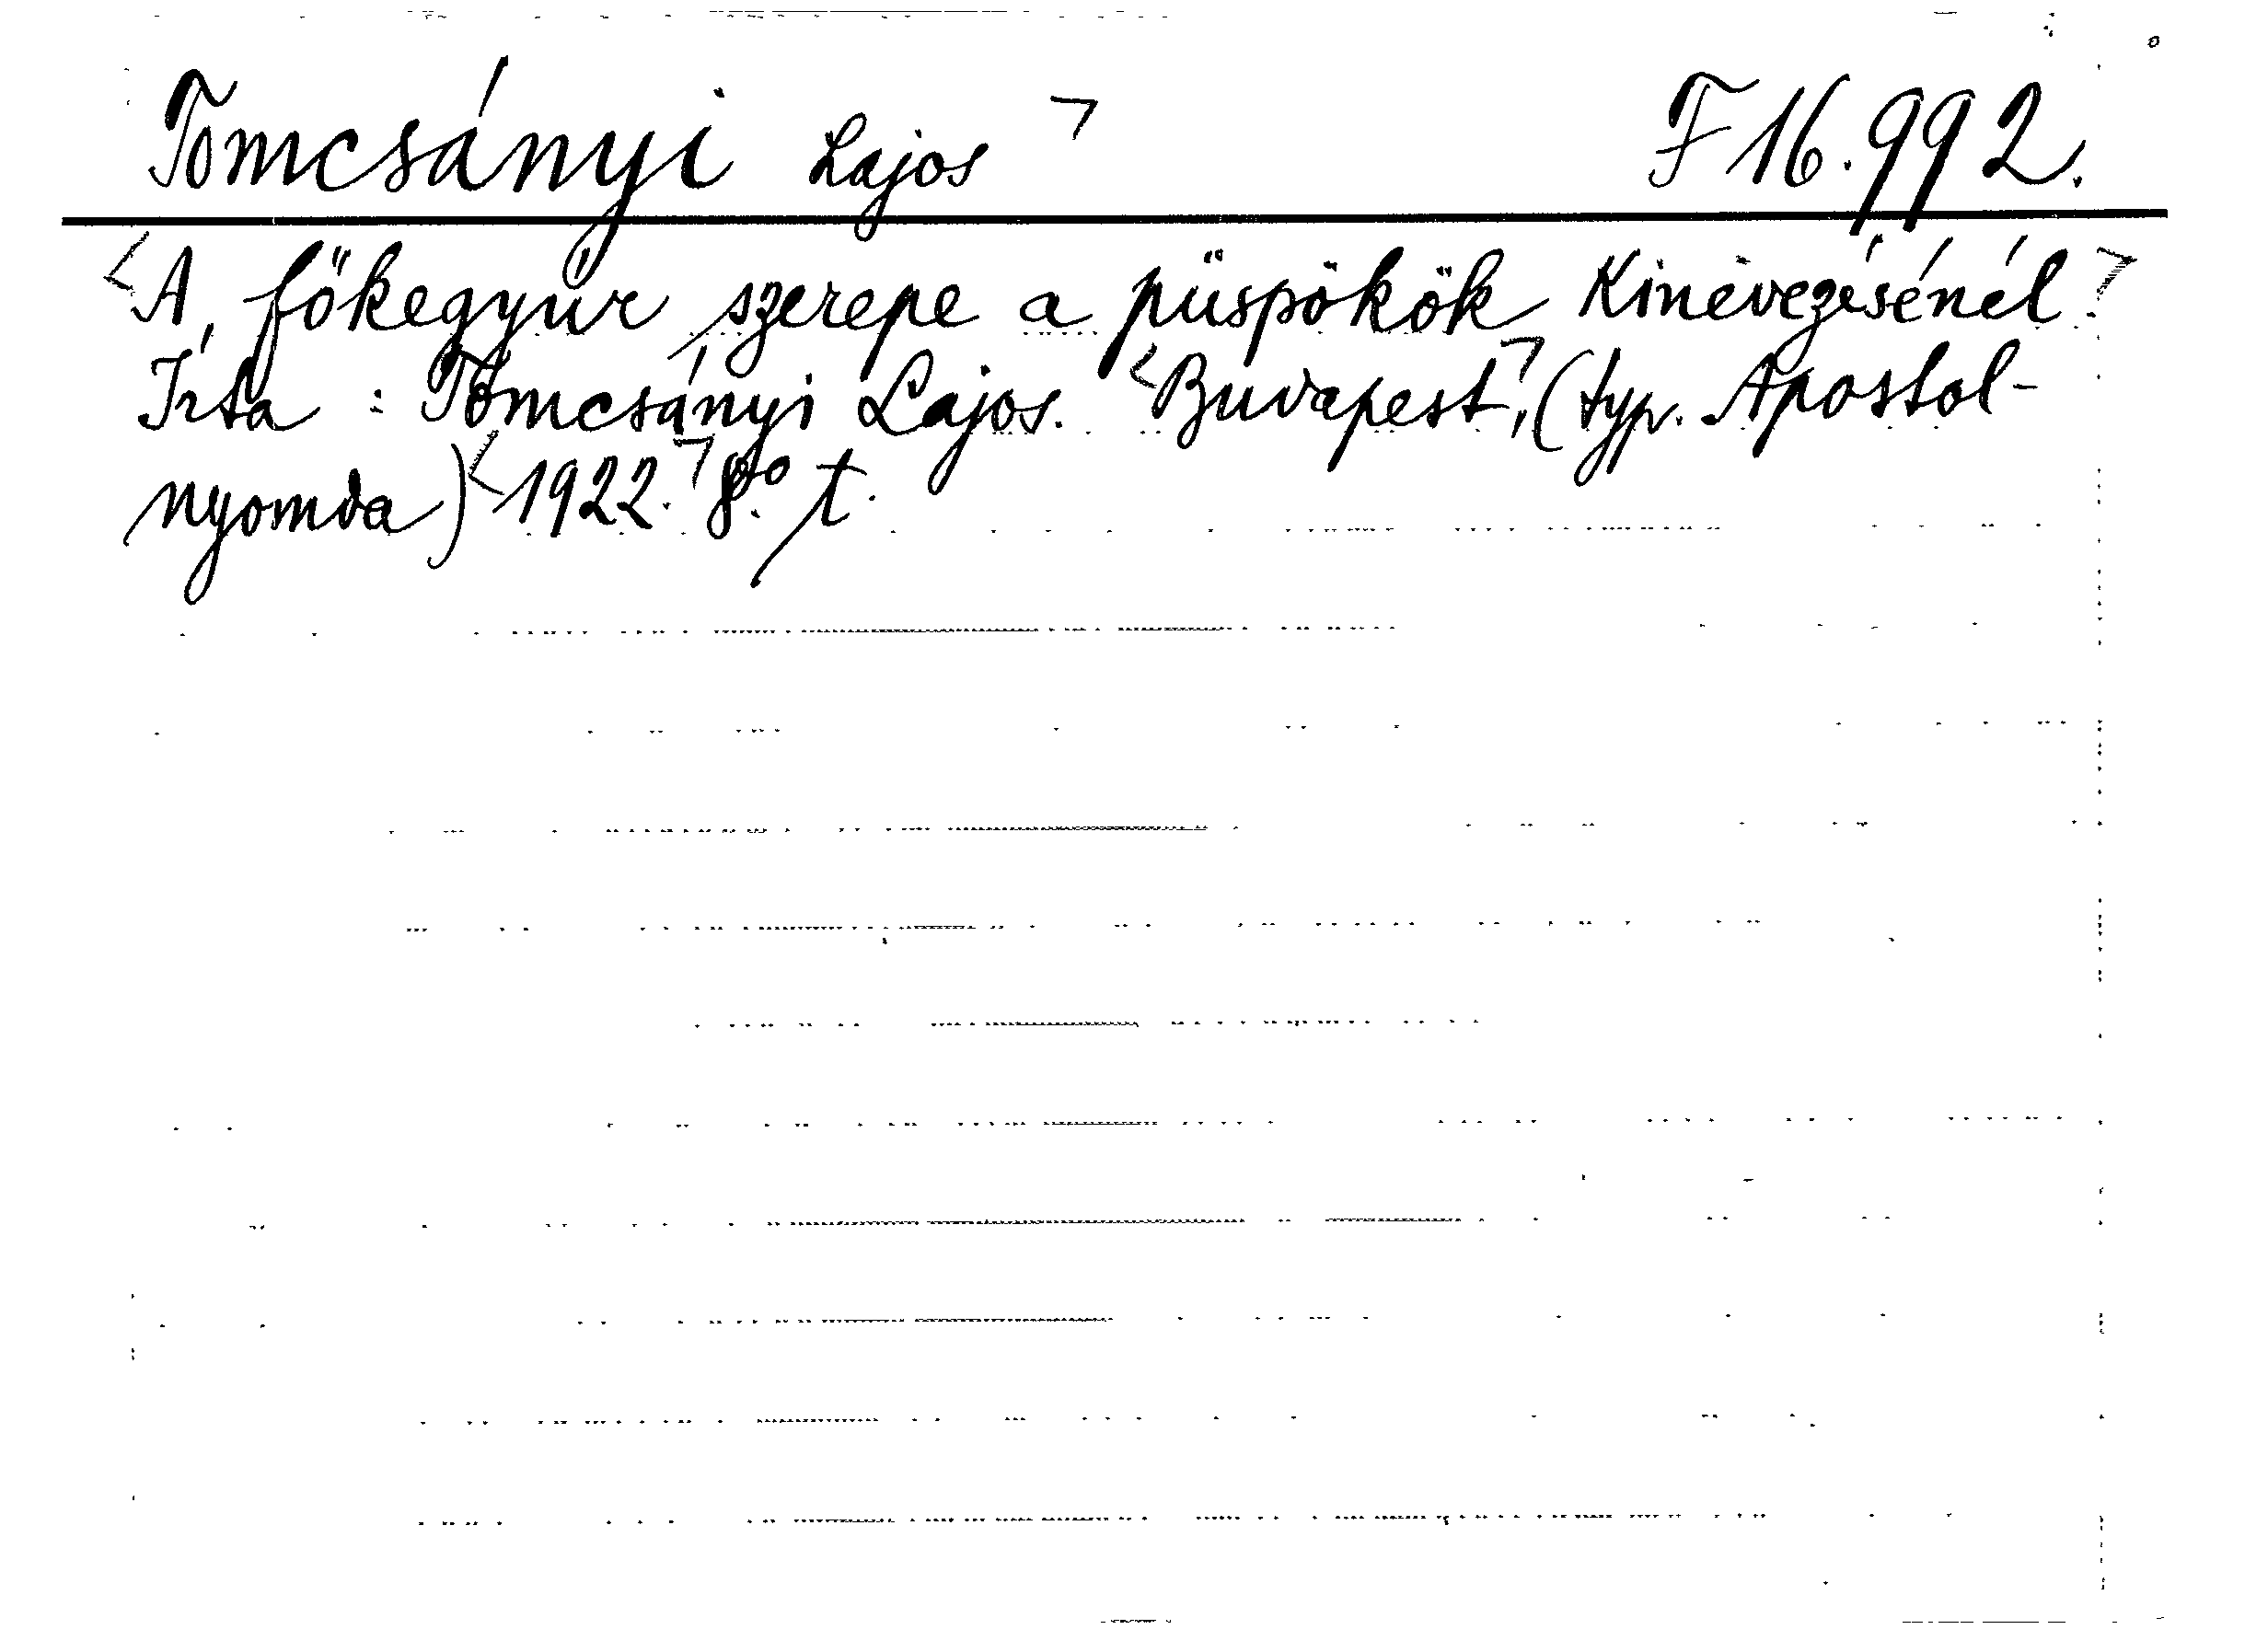 Tomcsányi Lajos ⌝ F 16.992.
<A főkegyúr szerepe a püspökök kinevezésénél.⌝
Írta : Tomcsányi Lajos. <Budapest⌝, (typ. Apostol-
nyomda) <1922.⌝ 8° t.